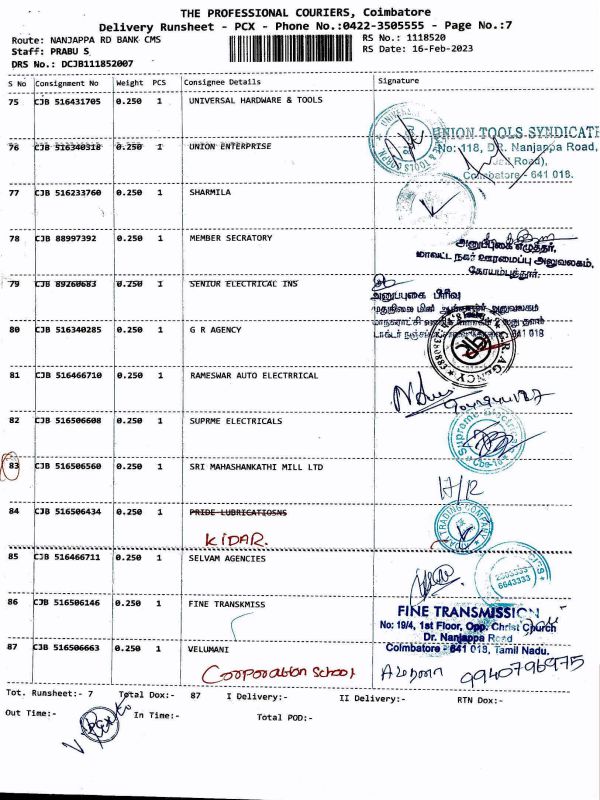 THE PROFESSIONAL COURIERS, Coimbatore
Delivery Runsheet - PCX - Phone No.:0422-3505555 - Page No.:7
Route: NANJAPPA RD BANK CMS RS No.: 1118520
Staff: PRABU S RS Date: 16-Feb-2023
DRS No.: DCJB111852007
S No Consignment No Weight PCS Consignee Details Signature
75 CJB 516431705 0.250 1 UNIVERSAL HARDWARE & TOOLS
UNION TOOLS SYNDICATE
76 CJB 516340318 0.250 1 UNION ENTERPRISE No: 118, DR. Nanjappa Road,
Road),
Coimbatore - 641 018.
77 CJB 516233760 0.250 1 SHARMILA
78 CJB 88997392 0.250 1 MEMBER SECRATORY
மாவட்ட நகர் ஊரமைப்பு அலுவலகம்,
கோயம்புத்தூர்.
79 CJB 89260683 0.250 1 SENIOR ELECTRICAL INS
அனுப்புகை பிரிவு
80 CJB 516340285 0.250 1 G R AGENCY
G.R. AGENCY
81 CJB 516466710 0.250 1 RAMESWAR AUTO ELECTRRICAL
82 CJB 516506608 0.250 1 SUPRME ELECTRICALS
Supreme Electricals
83 CJB 516506560 0.250 1 SRI MAHASHANKATHI MILL LTD
84 CJB 516506434 0.250 1 PRIDE LUBRICATIOSNS
TRADING COMPANY
KIDAR.
85 CJB 516466711 0.250 1 SELVAM AGENCIES
2503333
6643333
86 CJB 516506146 0.250 1 FINE TRANSKMISS
FINE TRANSMISSION
No: 19/4, 1st Floor, Opp. Christ Church
Dr. Nanjappa Road
87 CJB 516506663 0.250 1 VELUMANI Coimbatore - 641 018, Tamil Nadu.
Corporation School 9940796975
Tot. Runsheet:- 7 Total Dox:- 87 I Delivery:- II Delivery:- RTN Dox:-
Out Time:- In Time:- Total POD:-